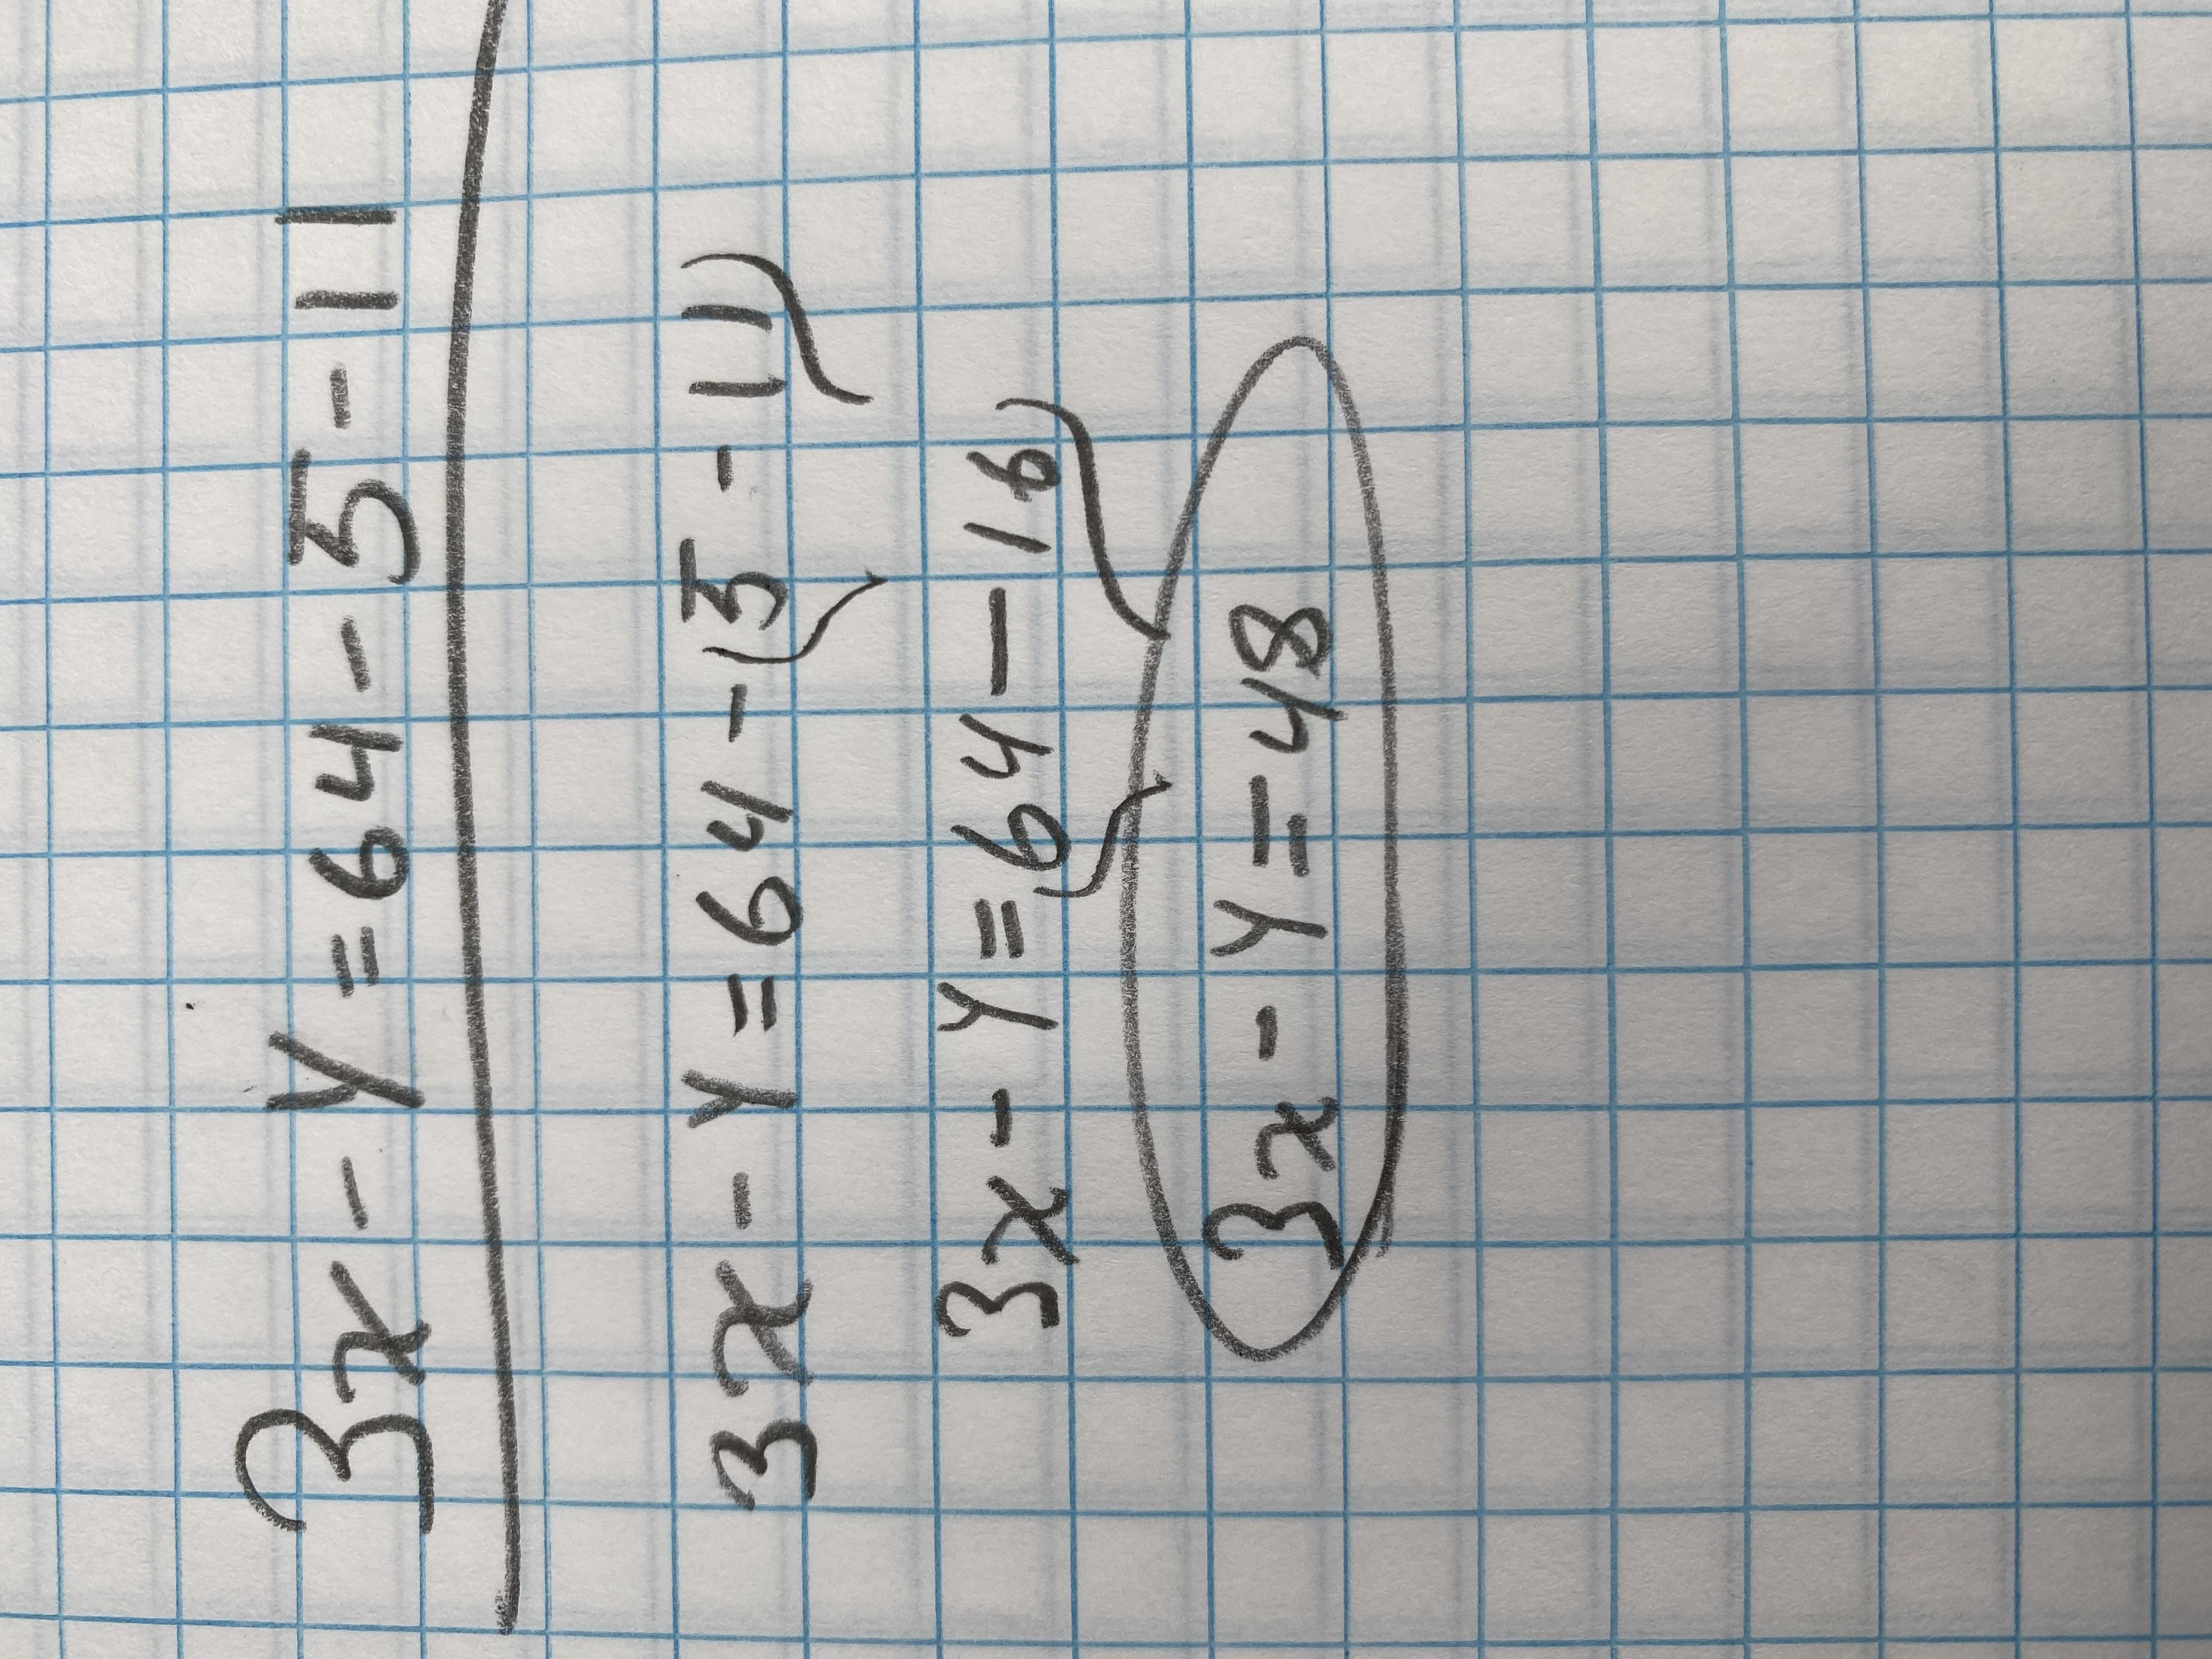 3x - y = 64 - 5 - 11
3x - y = 64 - (5 - 11)
3x - y = 64 - 16
3x - y = 48